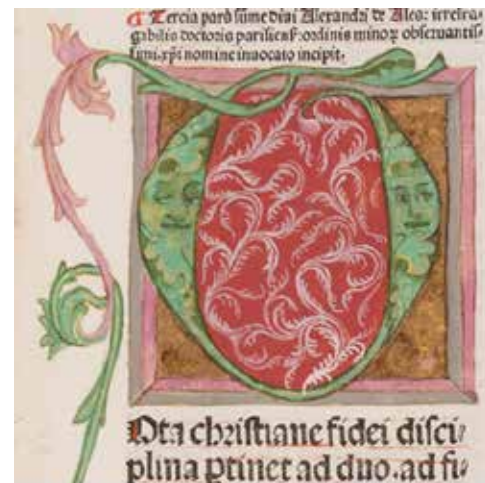 ¶ Tercia pars sūme divi Alexandri de Ales: irrefra⸗
gibilis doctoris parisień: ordinis minoꝝ obseruantis⸗
simi. xp̄i nomine inuocato incipit.
Ota christiane fidei disci⸗
plina ꝑtinet ad duo. ad fi⸗